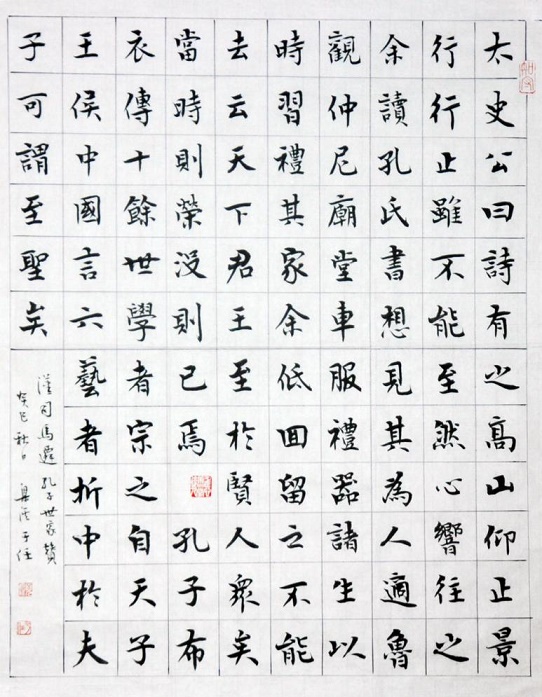 太史公曰詩有之高山仰止景
行行止雖不能至然心響往之
余讀孔氏書想見其為人適魯
觀仲尼廟堂車服禮器諸生以
時習禮其家余低回留之不能
去云天下君王至於賢人眾矣
當時則榮沒則已焉孔子布
衣傳十餘世學者宗之自天子
王侯中國言六藝者折中於夫
子可謂至聖矣
漢司馬遷孔子世家贊
癸巳秋日